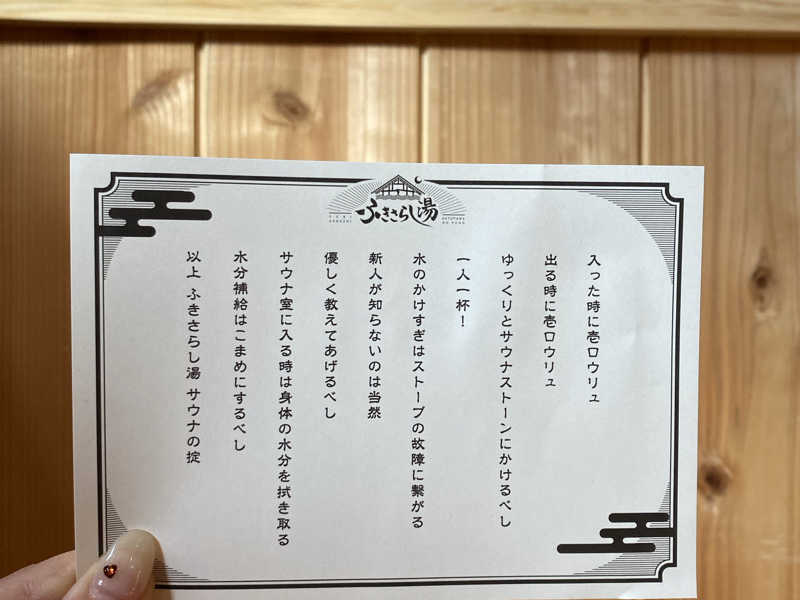 ふきさらし湯
入った時に壱ロウリュ
出る時に壱ロウリュ
ゆっくりとサウナストーンにかけるべし
一人一杯！
水のかけすぎはストーブの故障に繋がる
新人が知らないのは当然
優しく教えてあげるべし
サウナ室に入る時は身体の水分を拭き取る
水分補給はこまめにするべし
以上 ふきさらし湯 サウナの掟